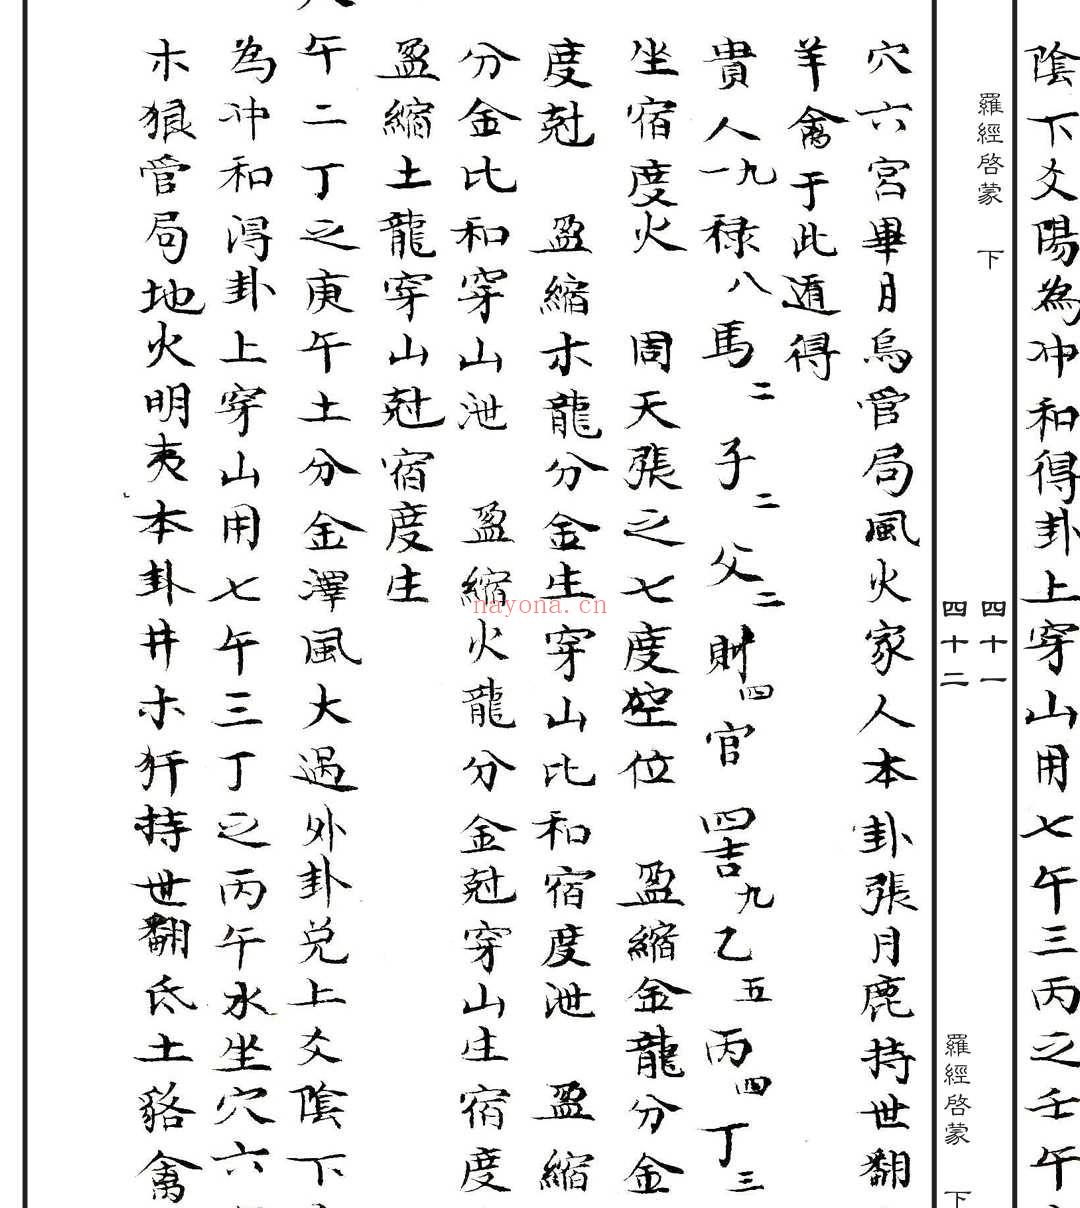 陰下爻陽為冲和得卦上穿山用七午三丙之壬午
羅經啓蒙 下
四十一
四十二
羅經啓蒙 下
穴六宮畢月烏管局風火家人本卦張月鹿持世翻
羊禽于此遁得
貴人一九祿八馬二子二父二財四官四吉九乙五丙四丁三
坐宿度火 周天張之七度空位 盈縮金龍分金
度尅 盈縮木龍分金生穿山比和宿度泄 盈縮
分金比和穿山泄 盈縮火龍分金尅穿山生宿度
盈縮土龍穿山尅宿度生
午二丁之庚午土分金澤風大過外卦兌上爻陰下
為冲和淂卦上穿山用七午三丁之丙午水坐穴六
木狼管局地火明夷本卦井木犴持世翻氐土貉禽
nayona.cn